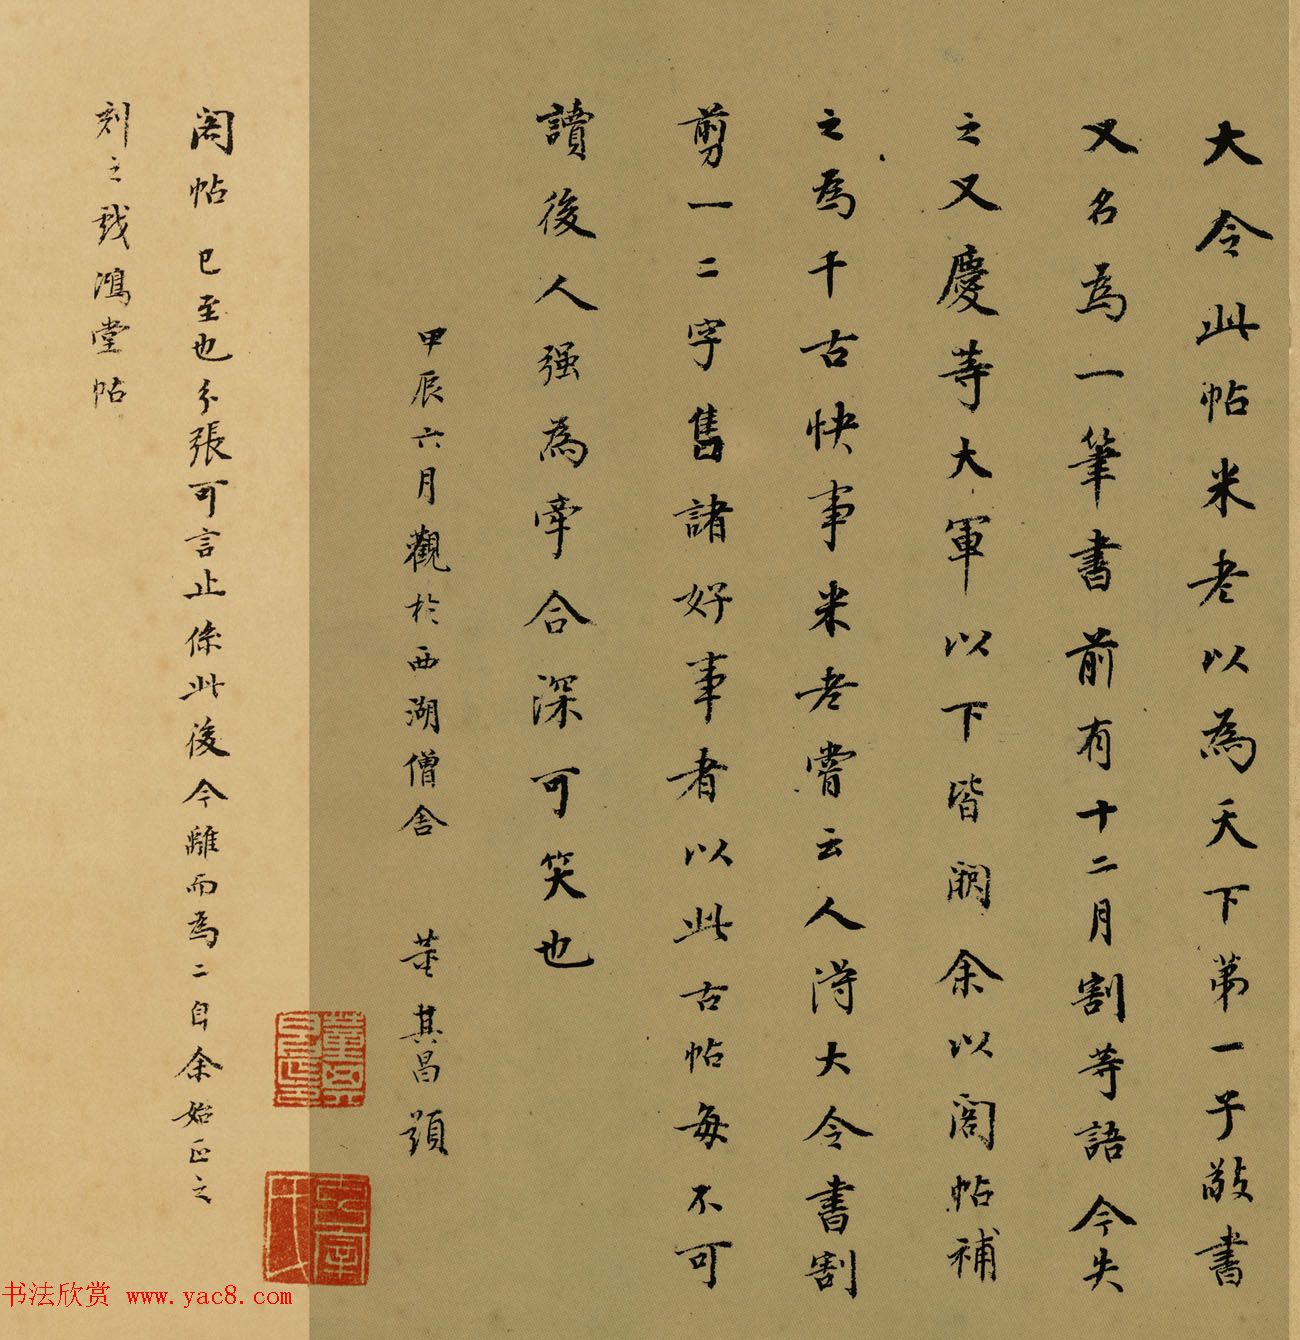 大令此帖米老以為天下第一子敬書
又名為一筆書前有十二月割等語今失
之又慶等大軍以下皆闕余以閣帖補
之為千古快事米老嘗云人得大令書割
剪一二字售諸好事者以此古帖每不可
讀後人强為牽合深可笑也
甲辰六月觀於西湖僧舍 董其昌題
閣帖已至也分張可言止係此後今離而為二自余始正之
刻之戲鴻堂帖
书法欣赏 www.yac8.com